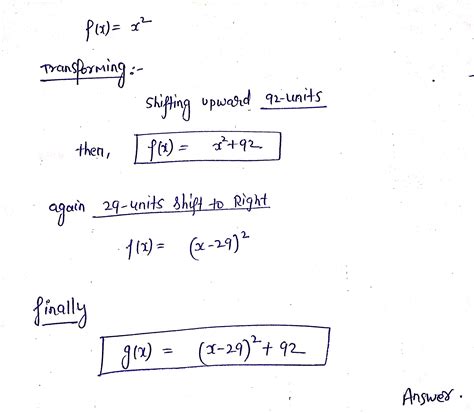 f(x) = x²
Transforming :-
Shifting upward 92-units
then, f(x) = x²+92
again 29-units shift to Right
f(x) = (x-29)²
finally
g(x) = (x-29)² + 92
Answer.